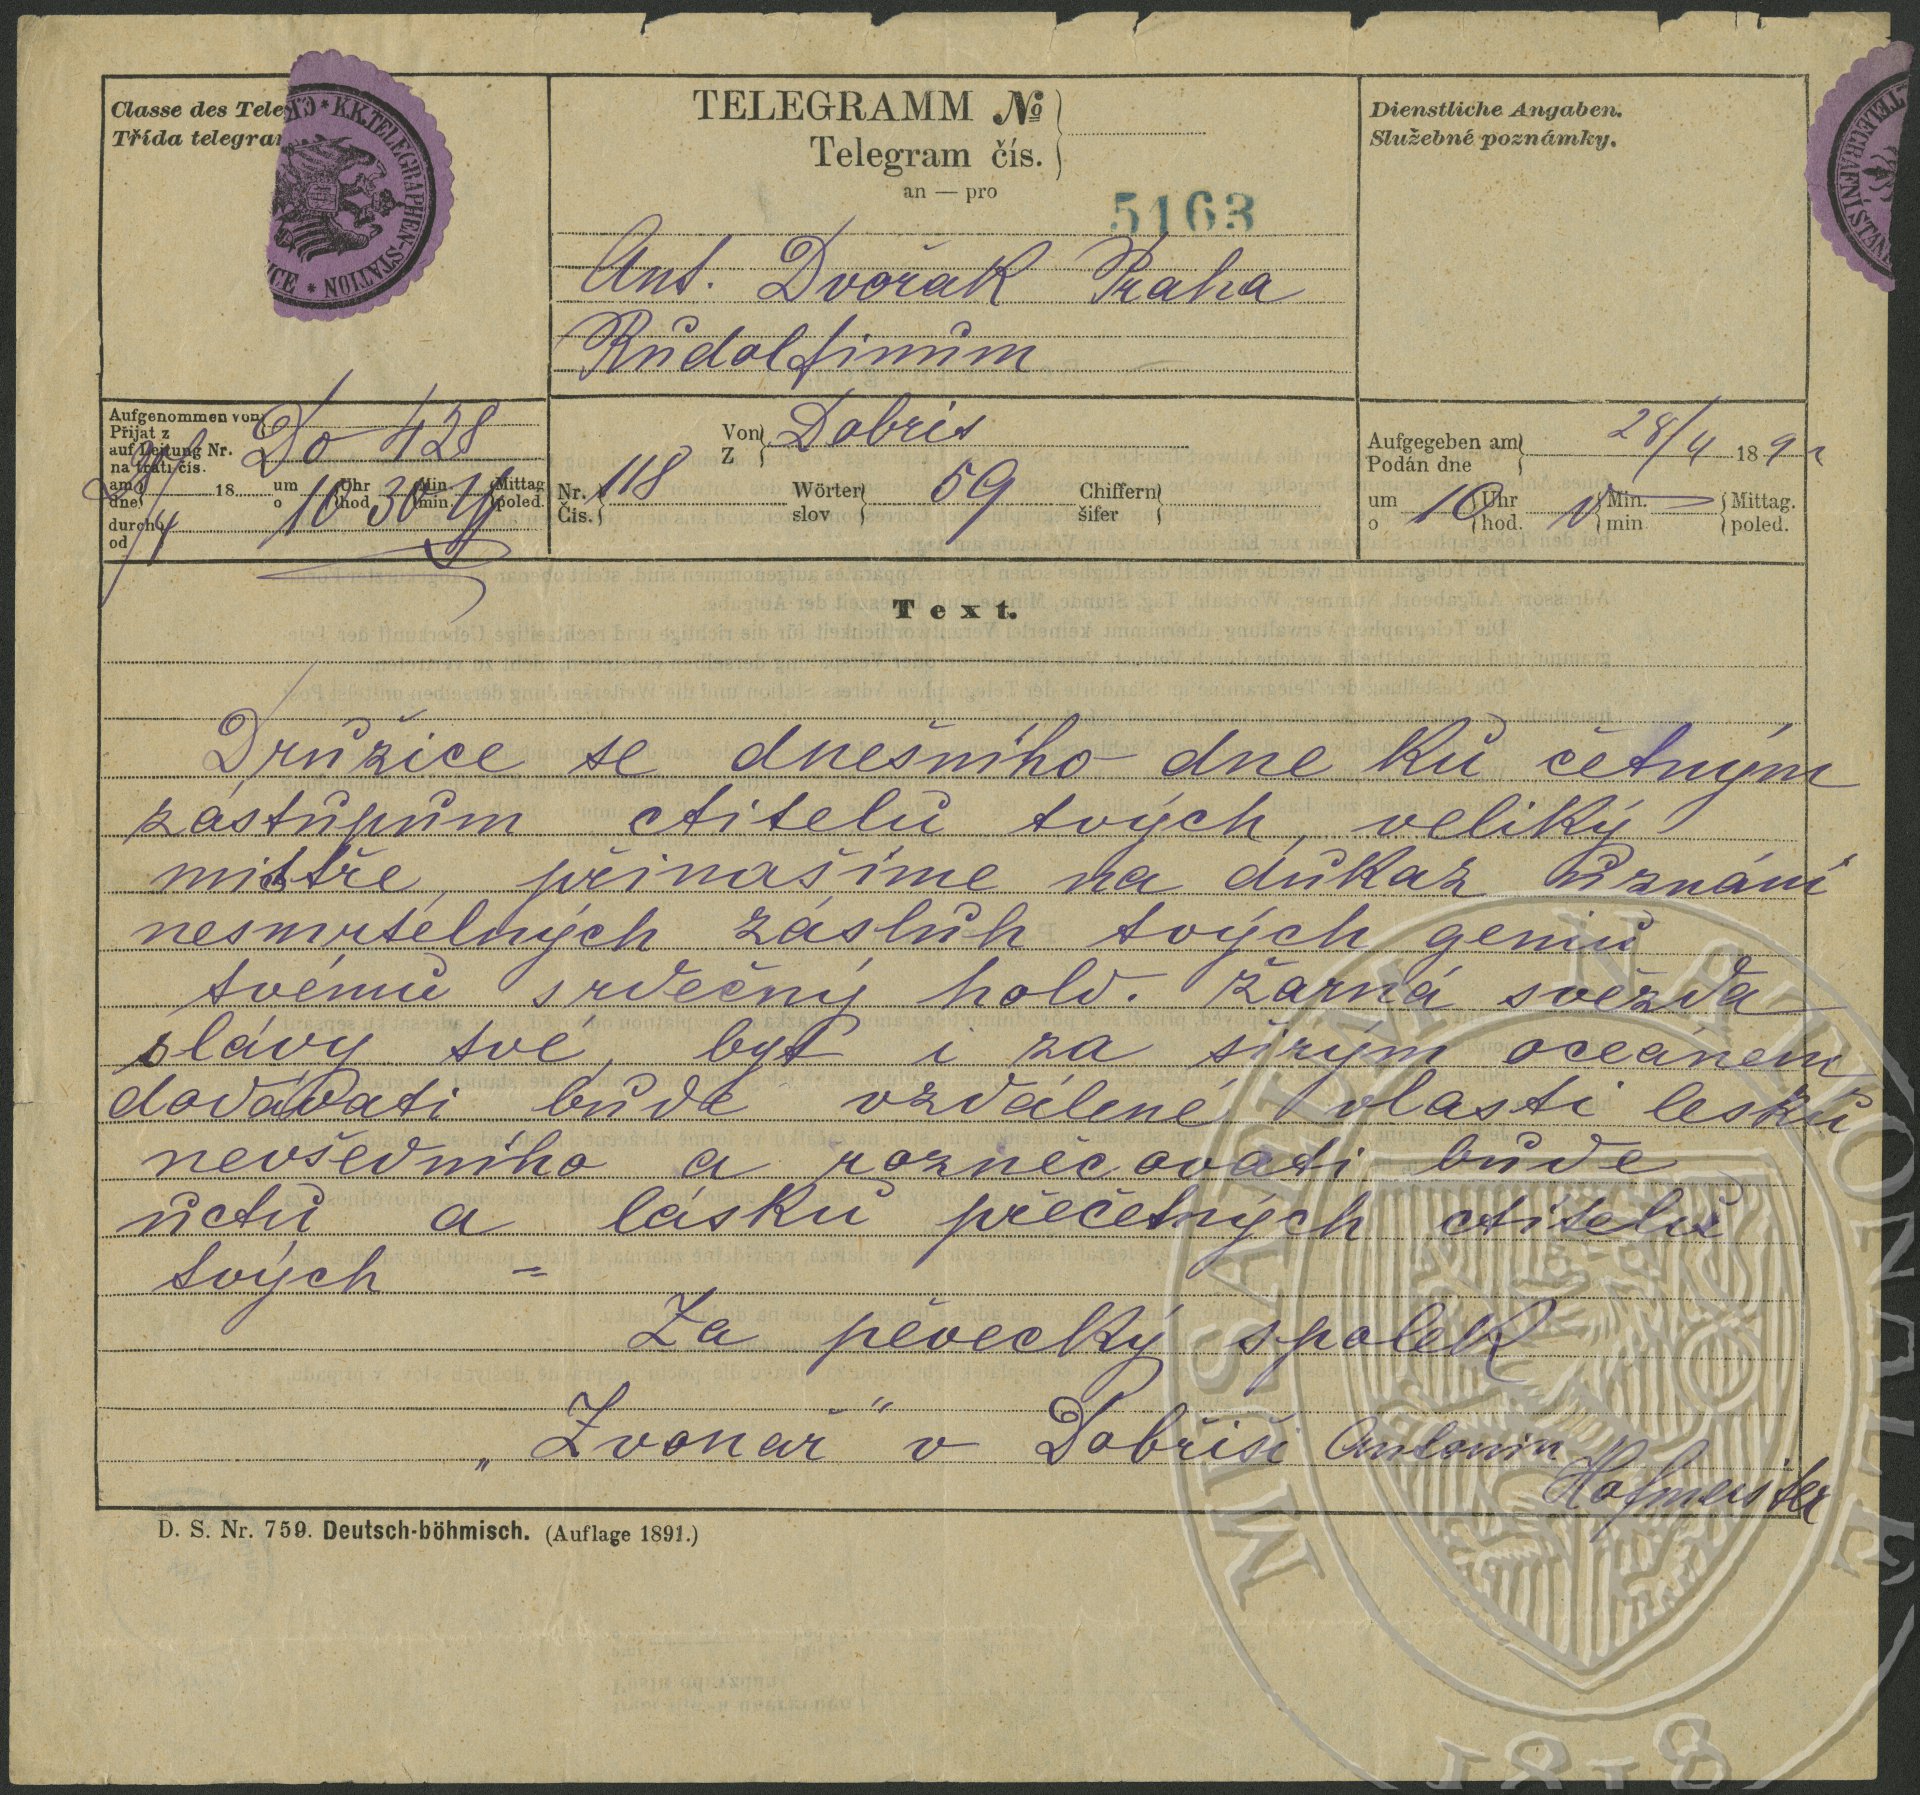 Classe des Tele
Třída telegram
K.K.TELEGRAPHEN-STATION
TELEGRAMM №
Telegram čís.
an — pro
5163
Ant. Dvořák Praha
Rudolfinum
Dienstliche Angaben.
Služebné poznámky.
Aufgenommen von
Přijat z
auf Leitung Nr.
na trati čís.
Do 428
am
dne
28/4
18
um
o
10 Uhr
hod.
30 Min.
min.
Mittag
poled.
durch
od
Von
Z
Dobris
Nr.
Čís.
118
Wörter
slov
59
Chiffern
šifer
Aufgegeben am
Podán dne
28/4 189
um
o
10 Uhr
hod.
Min.
min
Mittag.
poled.
Text.
Družice se dnešního dne ku četným
zástupům ctitelů tvých, veliký
mistře, přinašíme na důkaz uznání
nesmrtelných zásluh tvých geniu
tvému srdečný hold. Žarná svězda
slávy tvé, byt i za širým oceánem
dodávati bude vzdálené vlasti lesku
nevšedního a roznécovati bude
úctu a lásku přečetných ctitelů
tvých =
Za pěvecký spolek
„Zvonař" v Dobříši Antonín
Hofmeister
D. S. Nr. 759. Deutsch-böhmisch. (Auflage 1891.)
MUSAEUM NATIONALE
1818